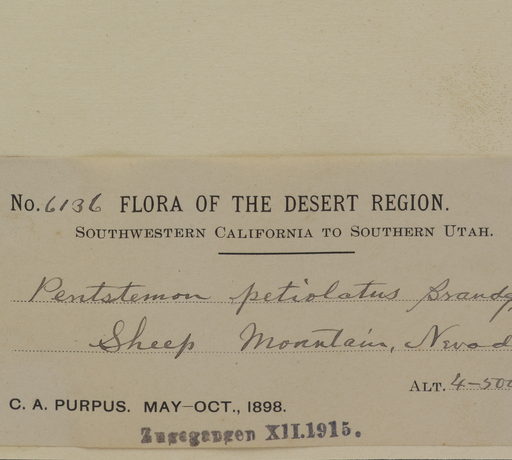 No. 6136 FLORA OF THE DESERT REGION.
SOUTHWESTERN CALIFORNIA TO SOUTHERN UTAH.
Pentstemon petiolatus Brandg
Sheep Mountain, Nevad
ALT. 4-500
C. A. PURPUS. MAY-OCT., 1898.
Zugegangen XII.1915.